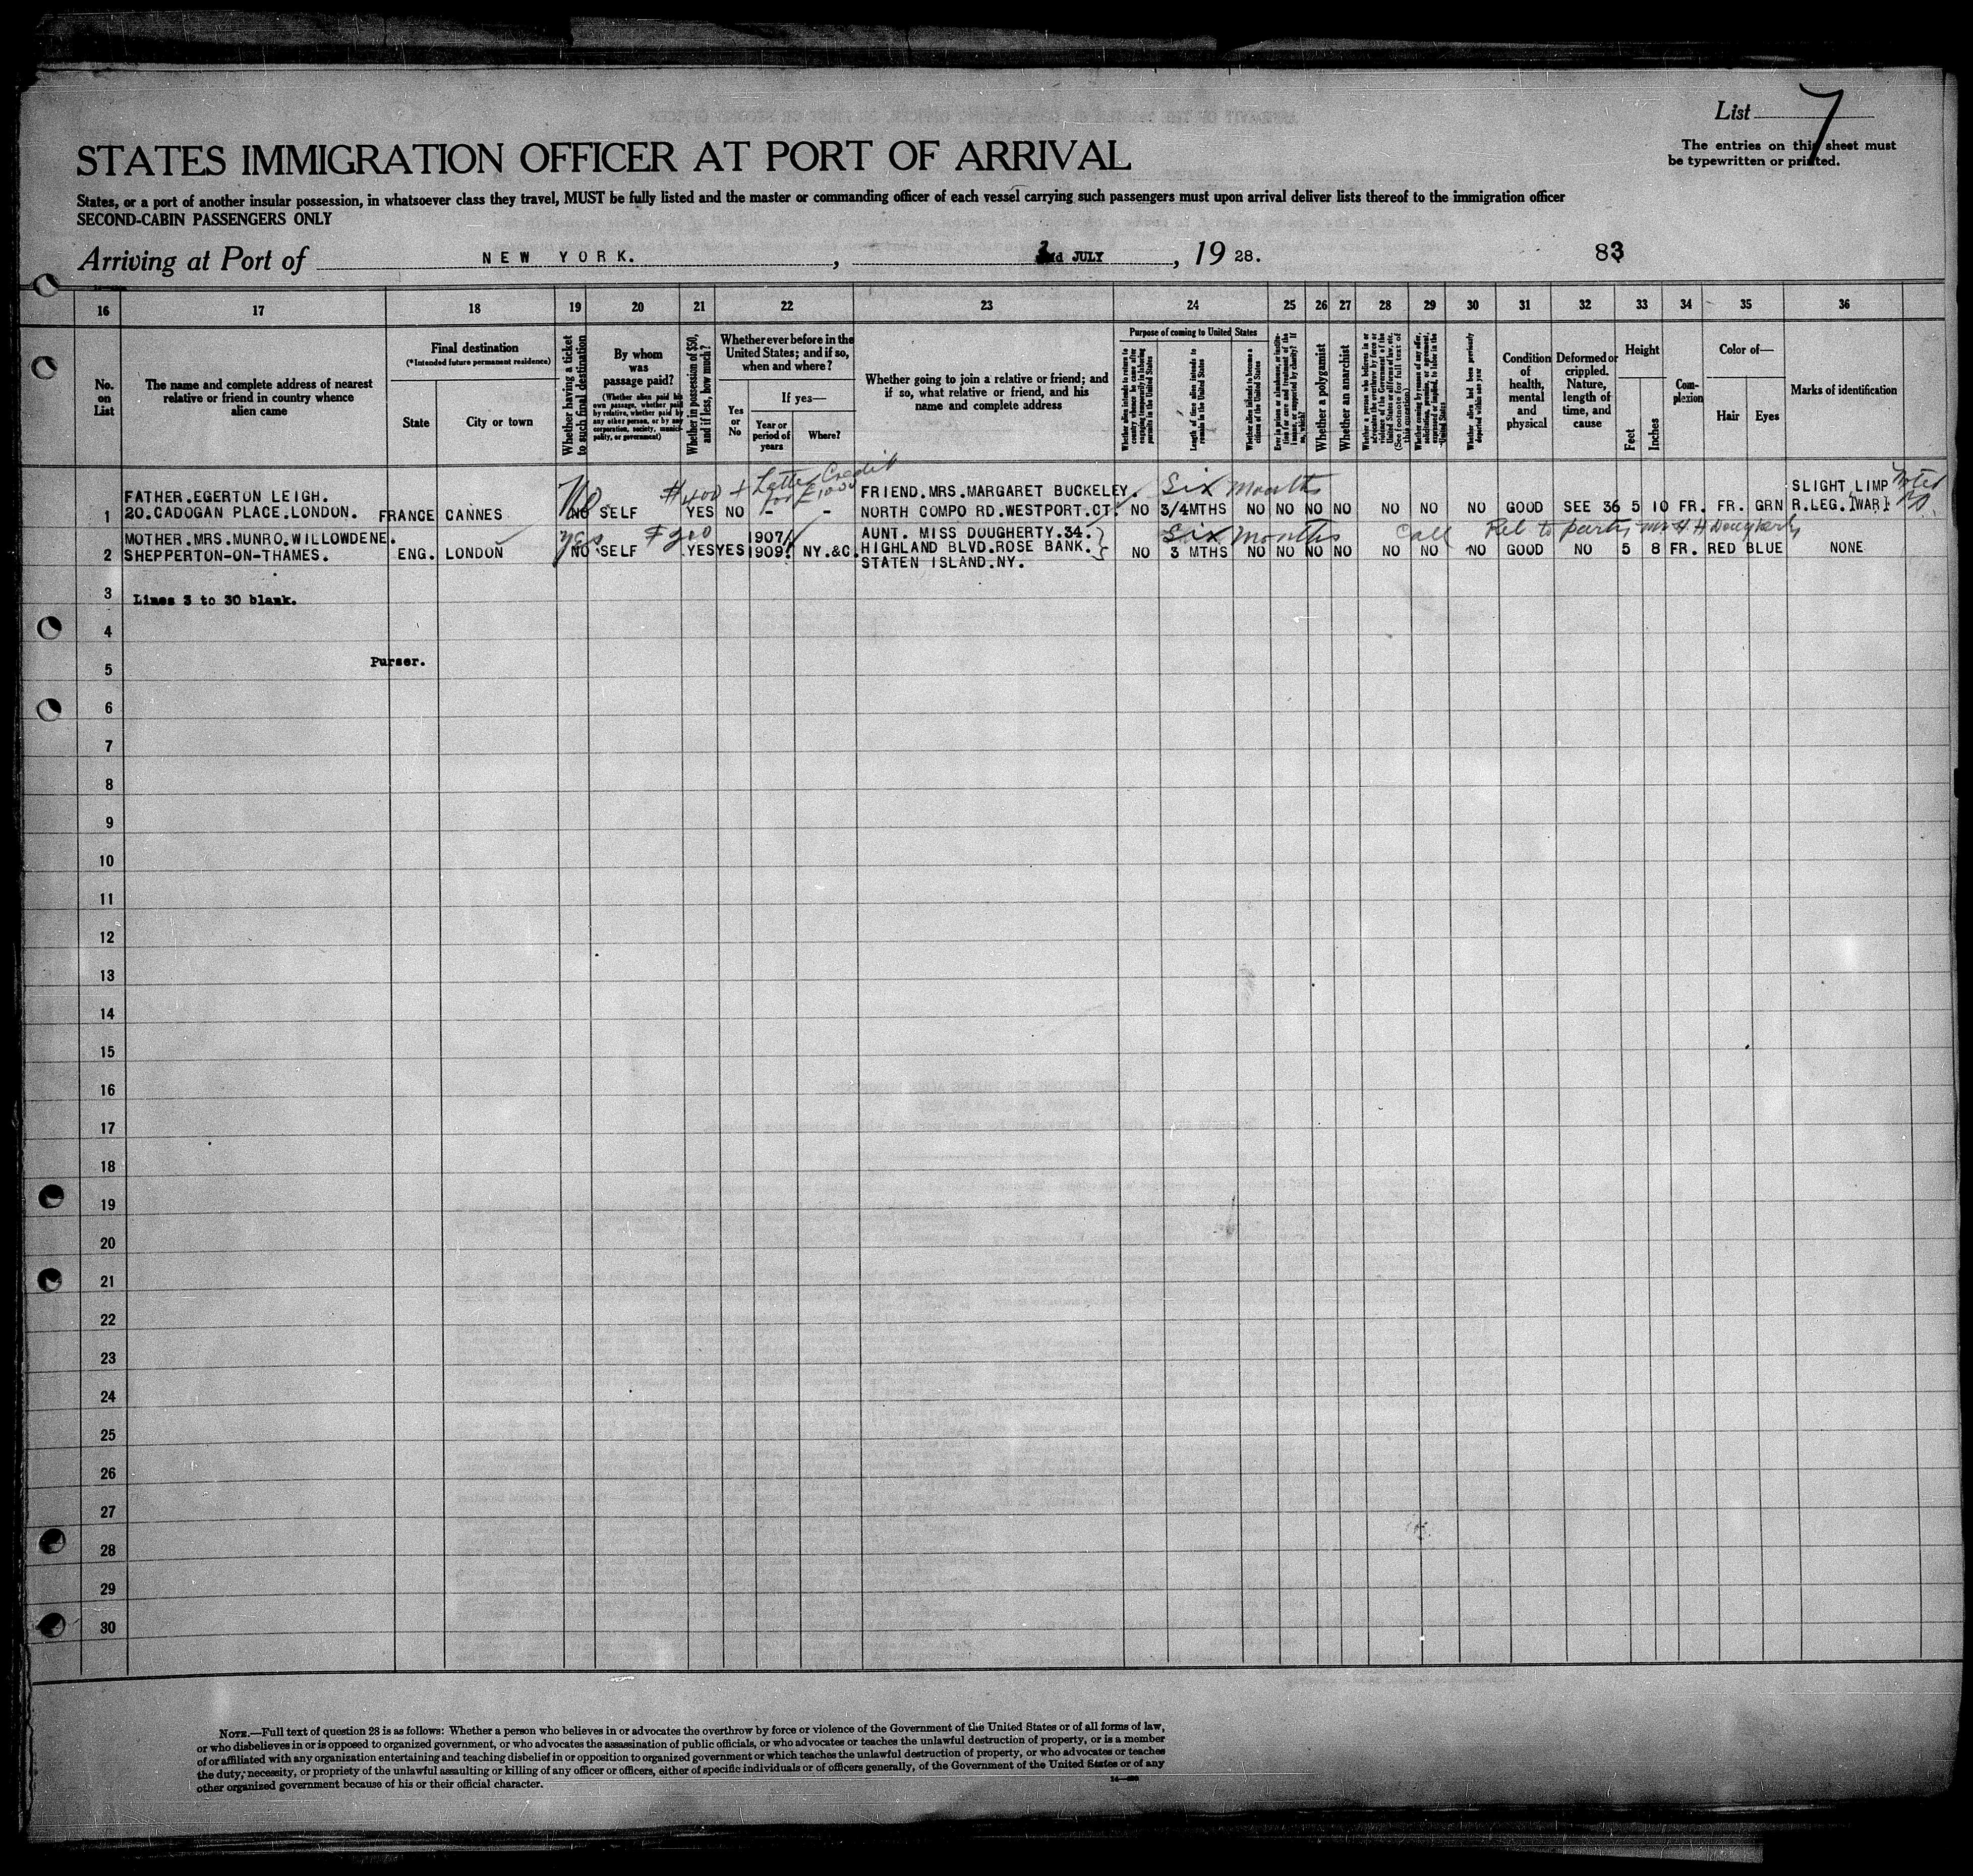 List 7
The entries on this sheet must
be typewritten or printed.
STATES IMMIGRATION OFFICER AT PORT OF ARRIVAL
States, or a port of another insular possession, in whatsoever class they travel, MUST be fully listed and the master or commanding officer of each vessel carrying such passengers must upon arrival deliver lists thereof to the immigration officer
SECOND-CABIN PASSENGERS ONLY
Arriving at Port of NEW YORK. , JULY , 19 28. 83
16 17 18 19 20 21 22 23 24 25 26 27 28 29 30 31 32 33 34 35 36
No. on List
The name and complete address of nearest relative or friend in country whence alien came
Final destination
(*Intended future permanent residence)
State
City or town
Whether having a ticket to such final destination
By whom was passage paid?
(Whether alien paid his own passage, whether paid by relative, whether paid by any other person, or by any corporation, society, municipality, or government)
Whether in possession of $50, and if less, how much?
Whether ever before in the United States; and if so, when and where?
Yes or No
If yes—
Year or period of years
Where?
Whether going to join a relative or friend; and if so, what relative or friend, and his name and complete address
Purpose of coming to United States
Length of time alien intends to remain in the United States
Whether alien intends to become a citizen of the United States
Whether a polygamist
Whether an anarchist
Condition of health, mental and physical
Deformed or crippled. Nature, length of time, and cause
Height
Feet
Inches
Complexion
Color of—
Hair
Eyes
Marks of identification
No $400 + Letter Credit for £1000 Six Months Noted
FATHER.EGERTON LEIGH. FRIEND.MRS.MARGARET BUCKELEY. SLIGHT LIMP
1 20.CADOGAN PLACE.LONDON. FRANCE CANNES NO SELF YES NO - - NORTH COMPO RD.WESTPORT.CT. NO 3/4MTHS NO NO NO NO NO NO NO GOOD SEE 36 5 10 FR. FR. GRN R.LEG.(WAR)
yes $200 Six Months Call Rel to party Mr H H Dougherty
MOTHER.MRS.MUNRO.WILLOWDENE. 1907/ AUNT. MISS DOUGHERTY.34.
2 SHEPPERTON-ON-THAMES. ENG. LONDON NO SELF YES YES 1909. NY.&C. HIGHLAND BLVD.ROSE BANK. NO 3 MTHS NO NO NO NO NO NO NO GOOD NO 5 8 FR. RED BLUE NONE
STATEN ISLAND.NY.
3 Lines 3 to 30 blank.
4
5 Purser.
6
7
8
9
10
11
12
13
14
15
16
17
18
19
20
21
22
23
24
25
26
27
28
29
30
NOTE.—Full text of question 28 is as follows: Whether a person who believes in or advocates the overthrow by force or violence of the Government of the United States or of all forms of law,
or who disbelieves in or is opposed to organized government, or who advocates the assassination of public officials, or who advocates or teaches the unlawful destruction of property, or is a member
of or affiliated with any organization entertaining and teaching disbelief in or opposition to organized government or which teaches the unlawful destruction of property, or who advocates or teaches
the duty, necessity, or propriety of the unlawful assaulting or killing of any officer or officers, either of specific individuals or of officers generally, of the Government of the United States or of any
other organized government because of his or their official character.